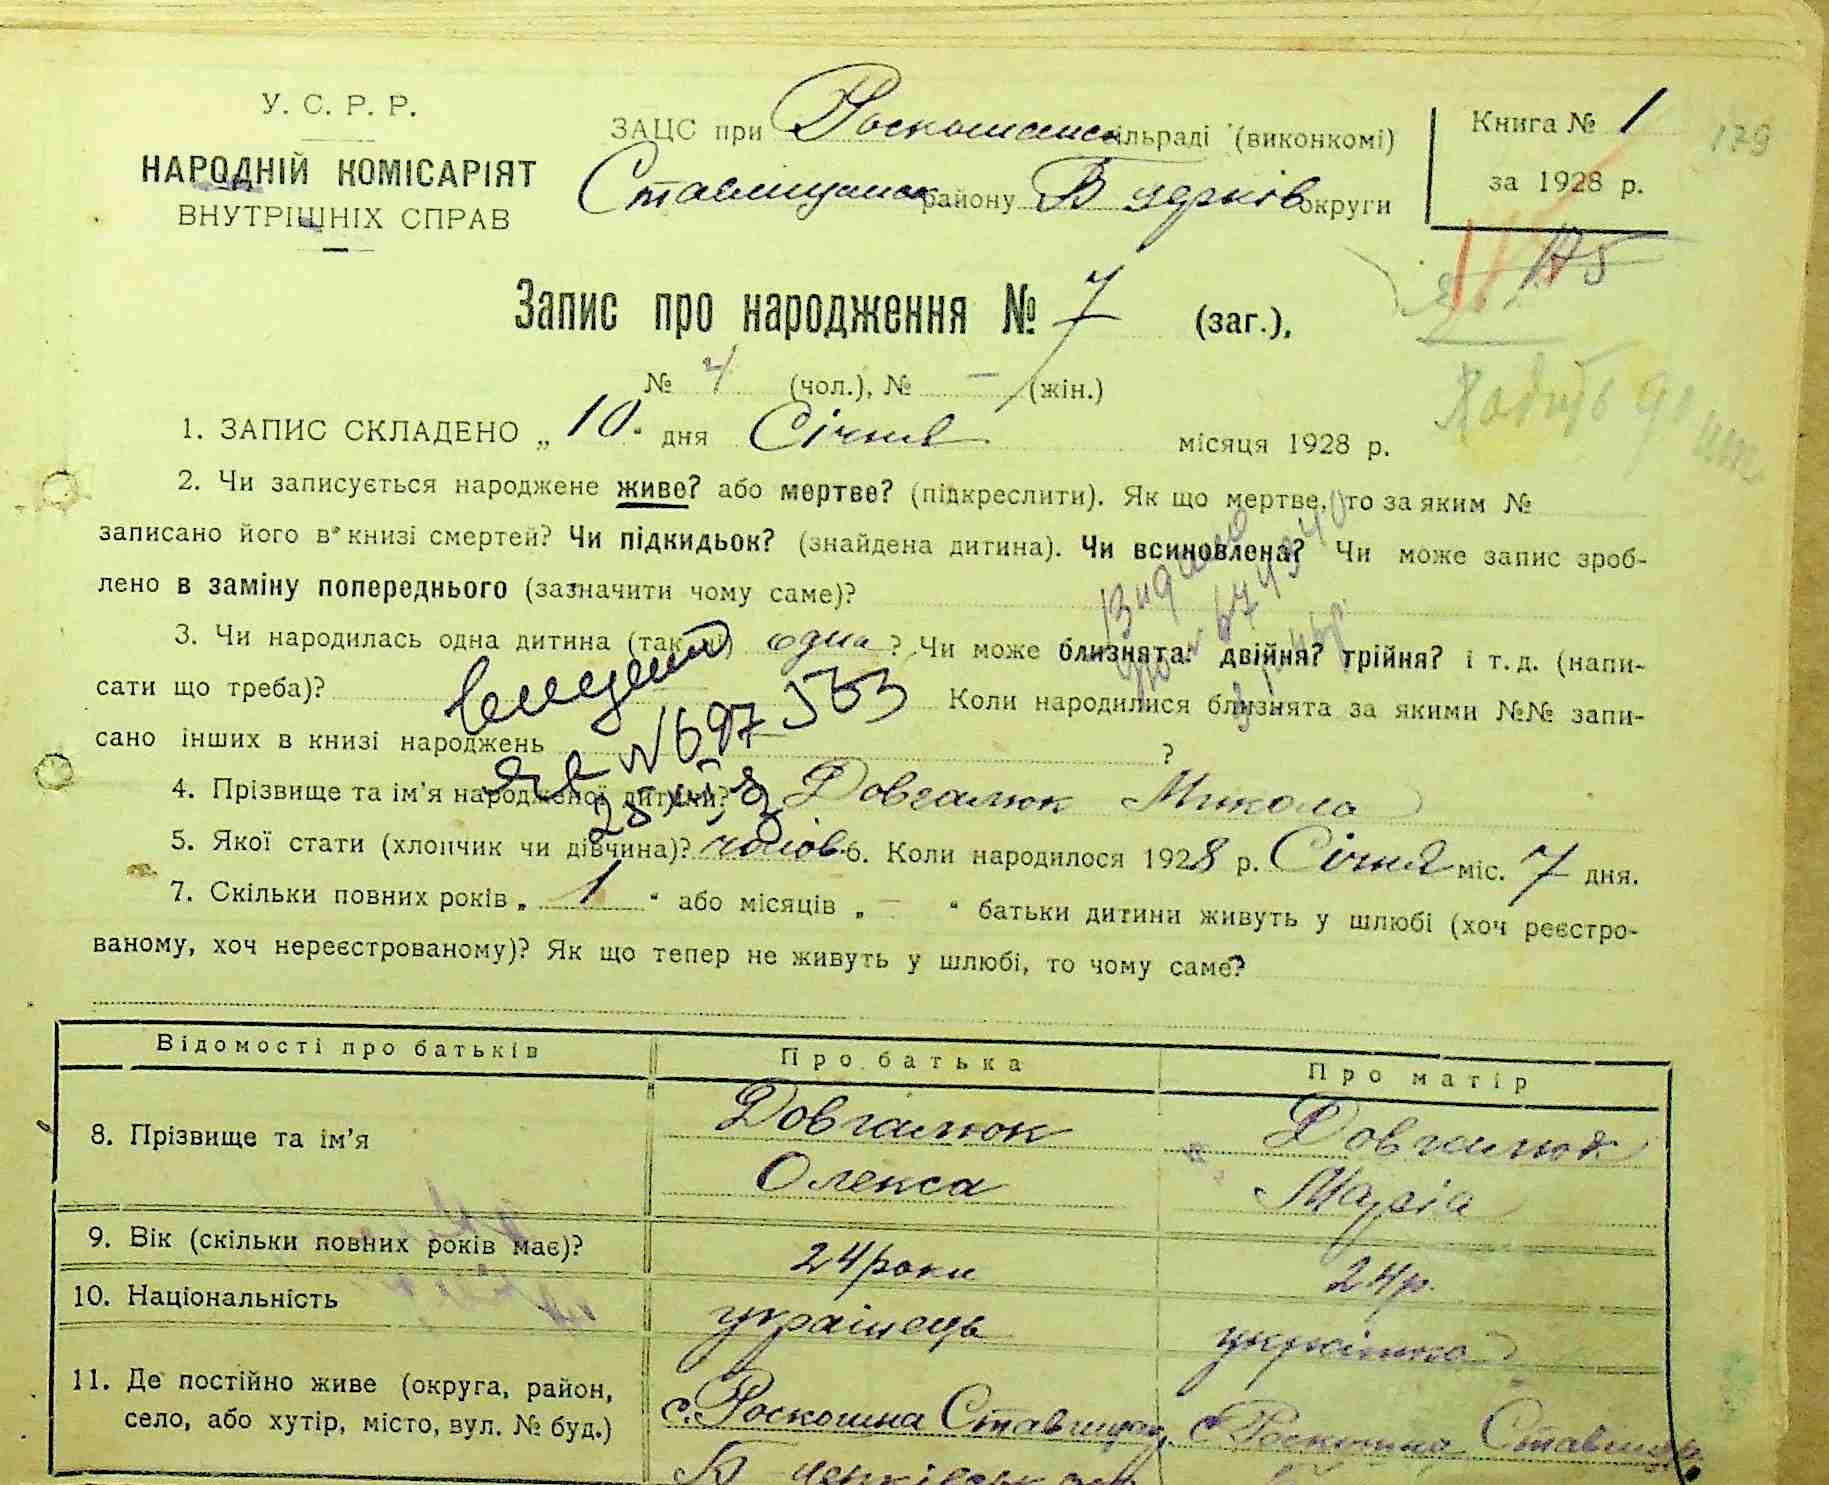 У. С. Р. Р.
НАРОДНІЙ КОМІСАРІЯТ
ВНУТРІШНІХ СПРАВ
ЗАЦС при Роскошанськ сільраді (виконкомі)
Ставищанськ району Б церків округи
Книга № 1
за 1928 р.
179
175
Запис про народження № 7 (заг.),
№ 4 (чол.), № — (жін.)
1. ЗАПИС СКЛАДЕНО „ 10 " дня Січня місяця 1928 р.
2. Чи записується народжене живе? або мертве? (підкреслити). Як що мертве, то за яким №
записано його в книзі смертей? Чи підкидьок? (знайдена дитина). Чи всиновлена? Чи може запис зроб-
лено в заміну попереднього (зазначити чому саме)?
3. Чи народилась одна дитина (так ні) одна ? Чи може близнята: двійня? трійня? і т. д. (напи-
сати що треба)? Коли народилися близнята за якими №№ запи-
сано інших в книзі народжень ?
№ 697533
4. Прізвище та ім'я народженої дитини? Довгалюк Микола
5. Якої стати (хлопчик чи дівчина)? чолов. 6. Коли народилося 1928 р. Січня міс. 7 дня.
7. Скільки повних років „ 1 " або місяців „ — " батьки дитини живуть у шлюбі (хоч реєстро-
ваному, хоч нереєстрованому)? Як що тепер не живуть у шлюбі, то чому саме?
Відомості про батьків Про батька Про матір
8. Прізвище та ім'я Довгалюк Олекса Довгалюк Марія
9. Вік (скільки повних років має)? 24 роки 24 р.
10. Національність українець українка
11. Де постійно живе (округа, район,
село, або хутір, місто, вул. № буд.)
с. Роскошна Ставищан. с. Роскошна Ставищ. р.